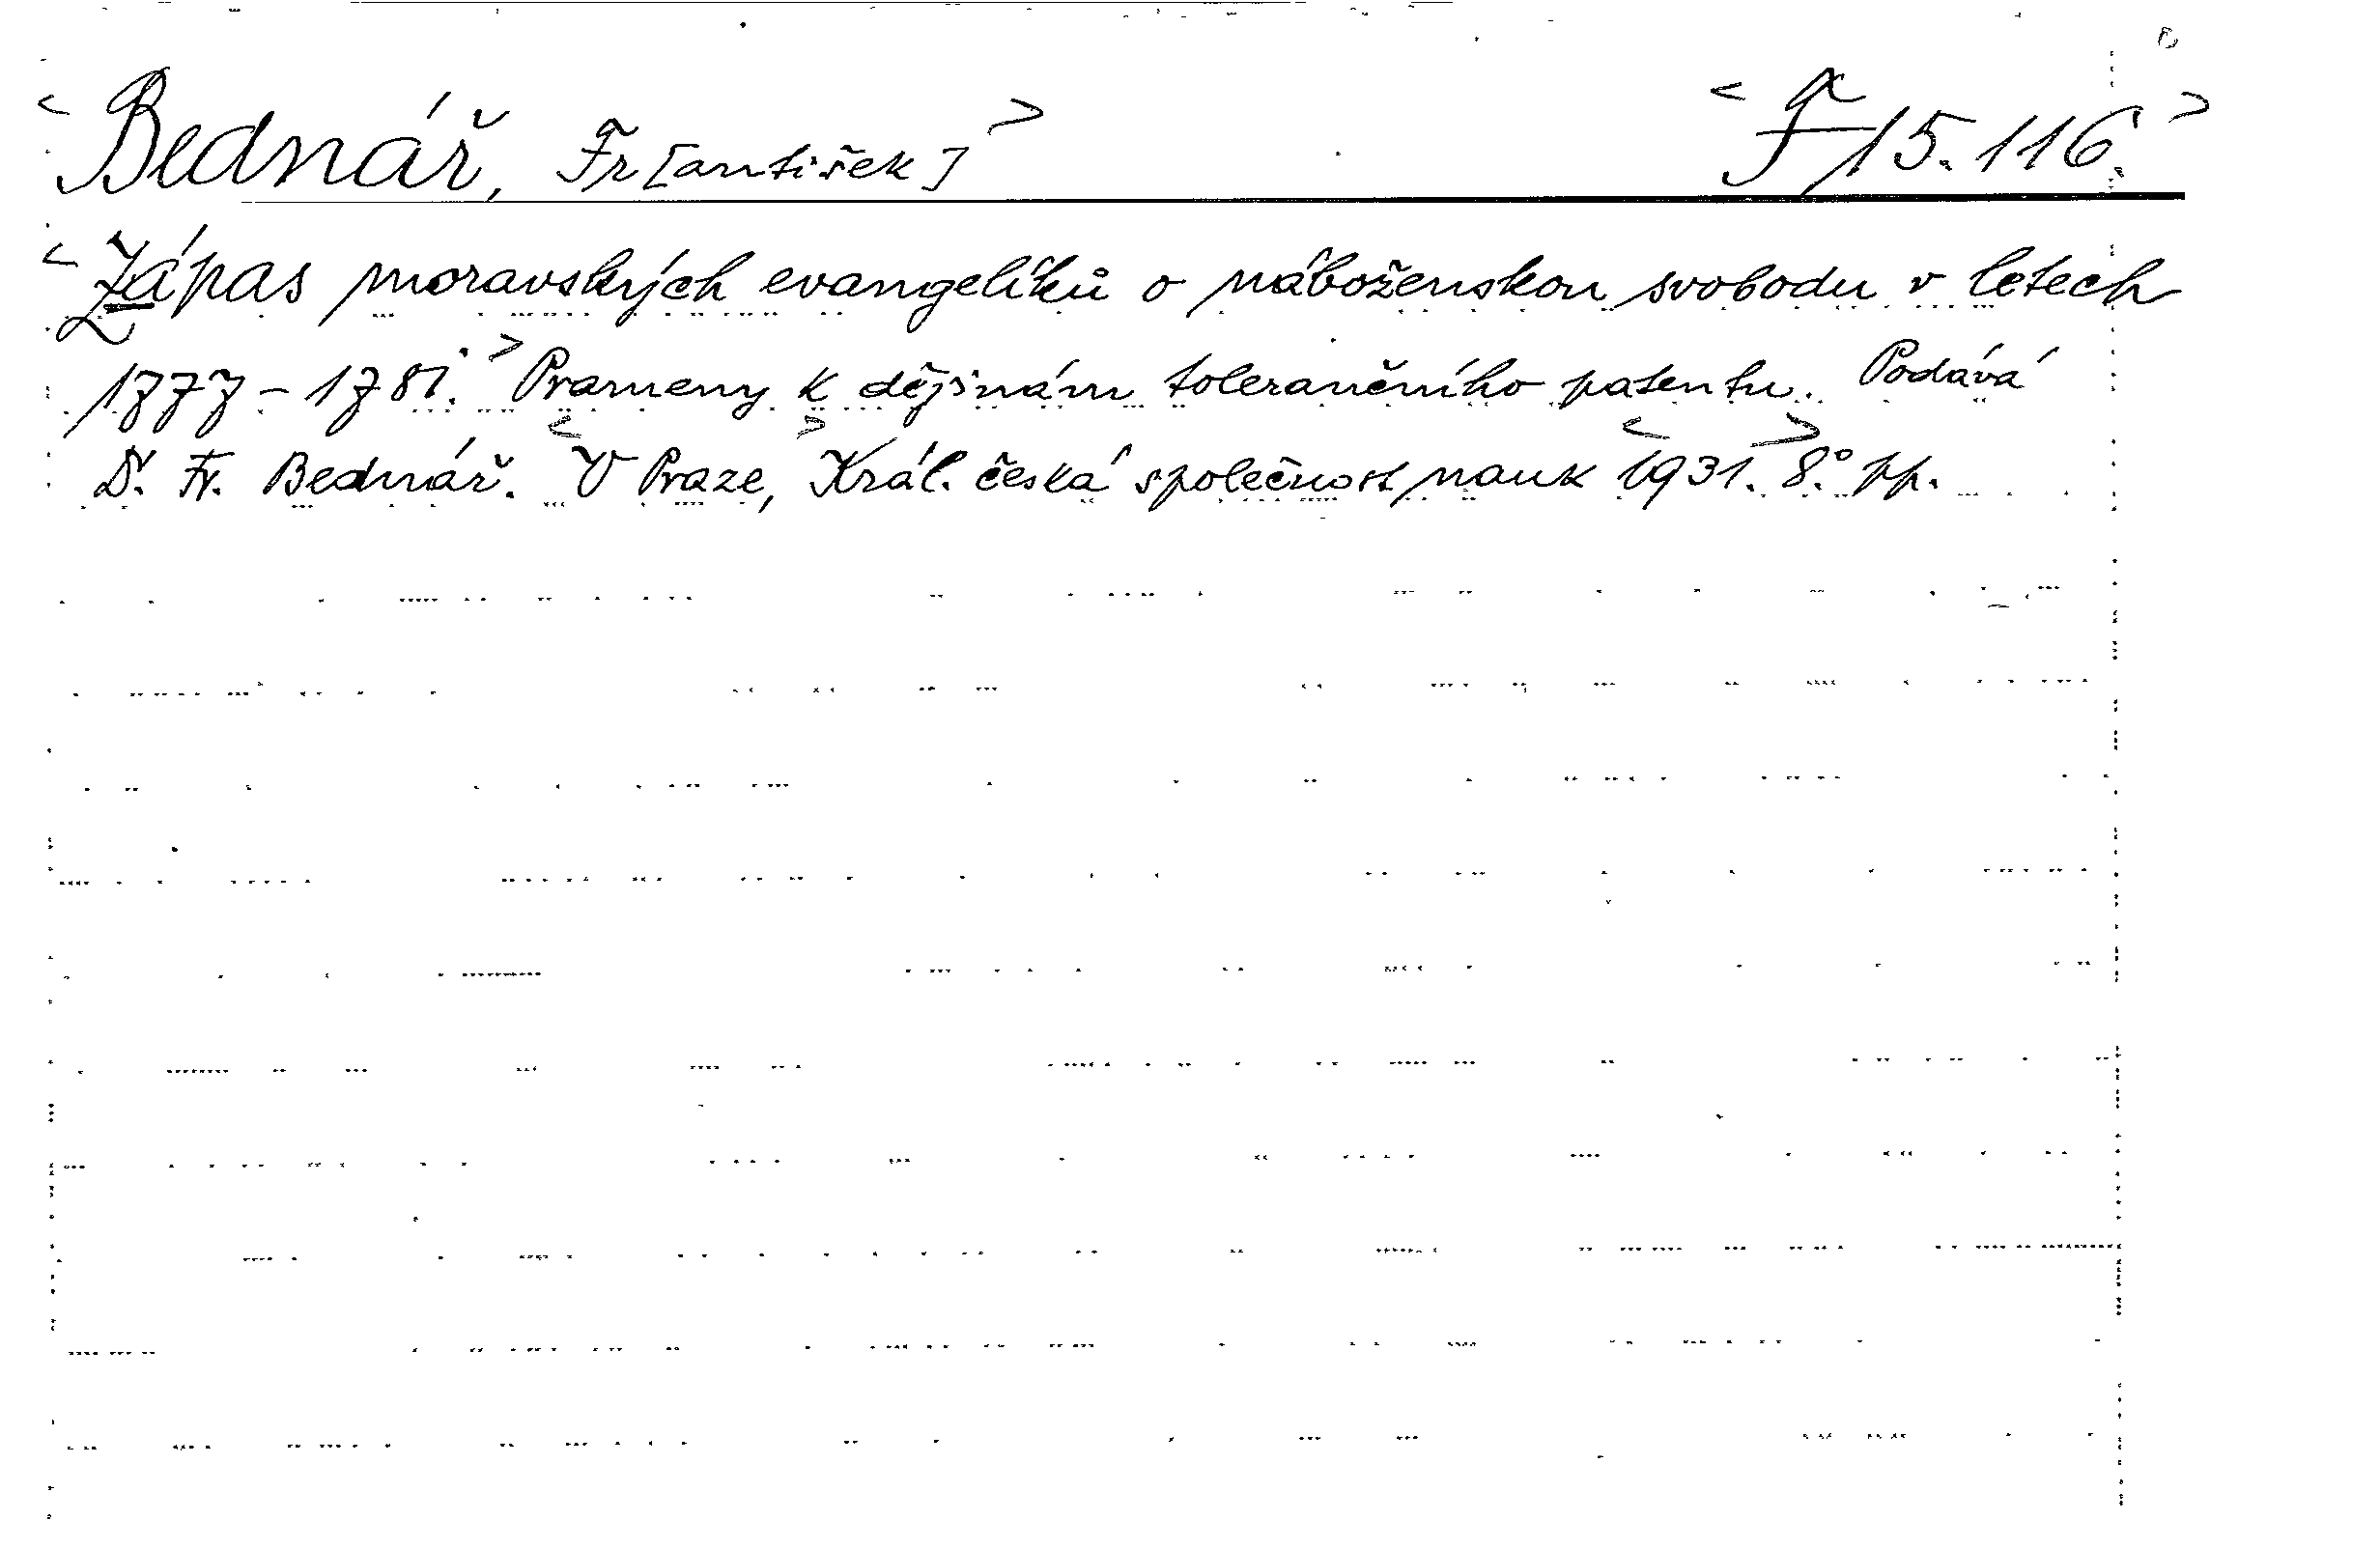 < Bednář, Fr[antišek] > < F 15.116. >
< Zápas moravských evangelíků o náboženskou svobodu v letech
1777-1781. > Prameny k dějinám tolerančního patentu. Podává
D. Fr. Bednář. < V Praze, > Král. česká společnost nauk < 1931. > 8.° pp.